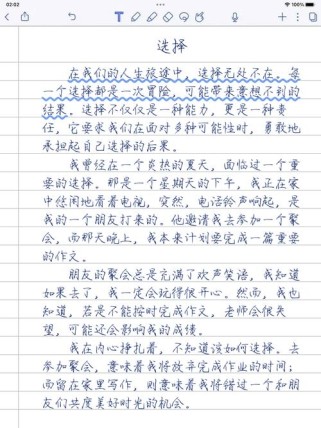 02:02
100%
选择
在我们的人生旅途中，选择无处不在。每
一个选择都是一次冒险，可能带来意想不到的
结果。选择不仅仅是一种能力，更是一种责
任，它要求我们在面对多种可能性时，勇敢地
承担起自己选择的后果。
我曾经在一个炎热的夏天，面临过一个重
要的选择。那是一个星期天的下午，我正在家
中悠闲地看着电视，突然，电话铃声响起，是
我的一个朋友打来的。他邀请我去参加一个聚
会，而那天晚上，我本来计划要完成一篇重要
的作文。
朋友的聚会总是充满了欢声笑语，我知道
如果去了，我一定会玩得很开心。然而，我也
知道，若是不能按时完成作文，老师会很失
望，可能还会影响我的成绩。
我在内心挣扎着，不知道该如何选择。去
参加聚会，意味着我将放弃完成作业的时间；
而留在家里写作，则意味着我将错过一个和朋
友们共度美好时光的机会。